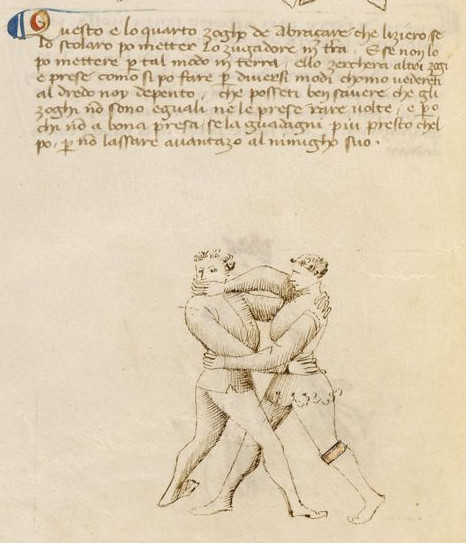 Questo e lo quarto zogho de Abrazare che liziero se
lo scolaro po metter lo zugadore in tra. E se non lo
po mettere p tal modo in terra, ello zercherà altri zogi
e prese como si po fare p diversi modi chomo vedereti
al dredo noy depento, che posseti ben savere che gli
zoghi nō sono eguali ne le prese rare volte, e pço
chi nō a bona presa, se la guadagni più presto chel
po, p nō lassare avantazo al nimigho suo.